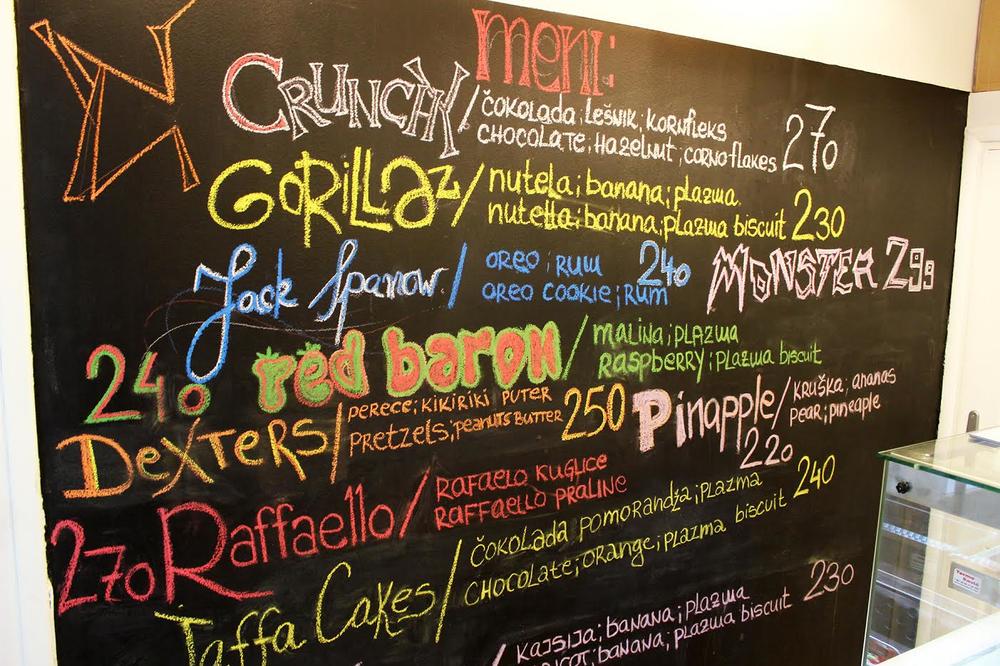 meni:
CRUNCHY / čokolada; lešnik; kornfleks 270
chocolate; hazelnut; corno flakes
GORILLaz / nutela; banana; plazma
nutella; banana; plazma biscuit 230
Jack Sparrow / oreo; rum 240
oreo cookie; rum
MONSTER 299
240 red baron / malina; plazma
raspberry; plazma biscuit
DeXTERS / perece; kikiriki puter 250
pretzels; peanuts butter
Pinapple / kruška; ananas
pear; pineaple
220
270 Raffaello / Rafaelo kuglice
Raffaello praline
Jaffa Cakes / čokolada pomorandža; plazma 240
chocolate; orange; plazma biscuit
kajsija; banana; plazma 230
banana; plazma biscuit